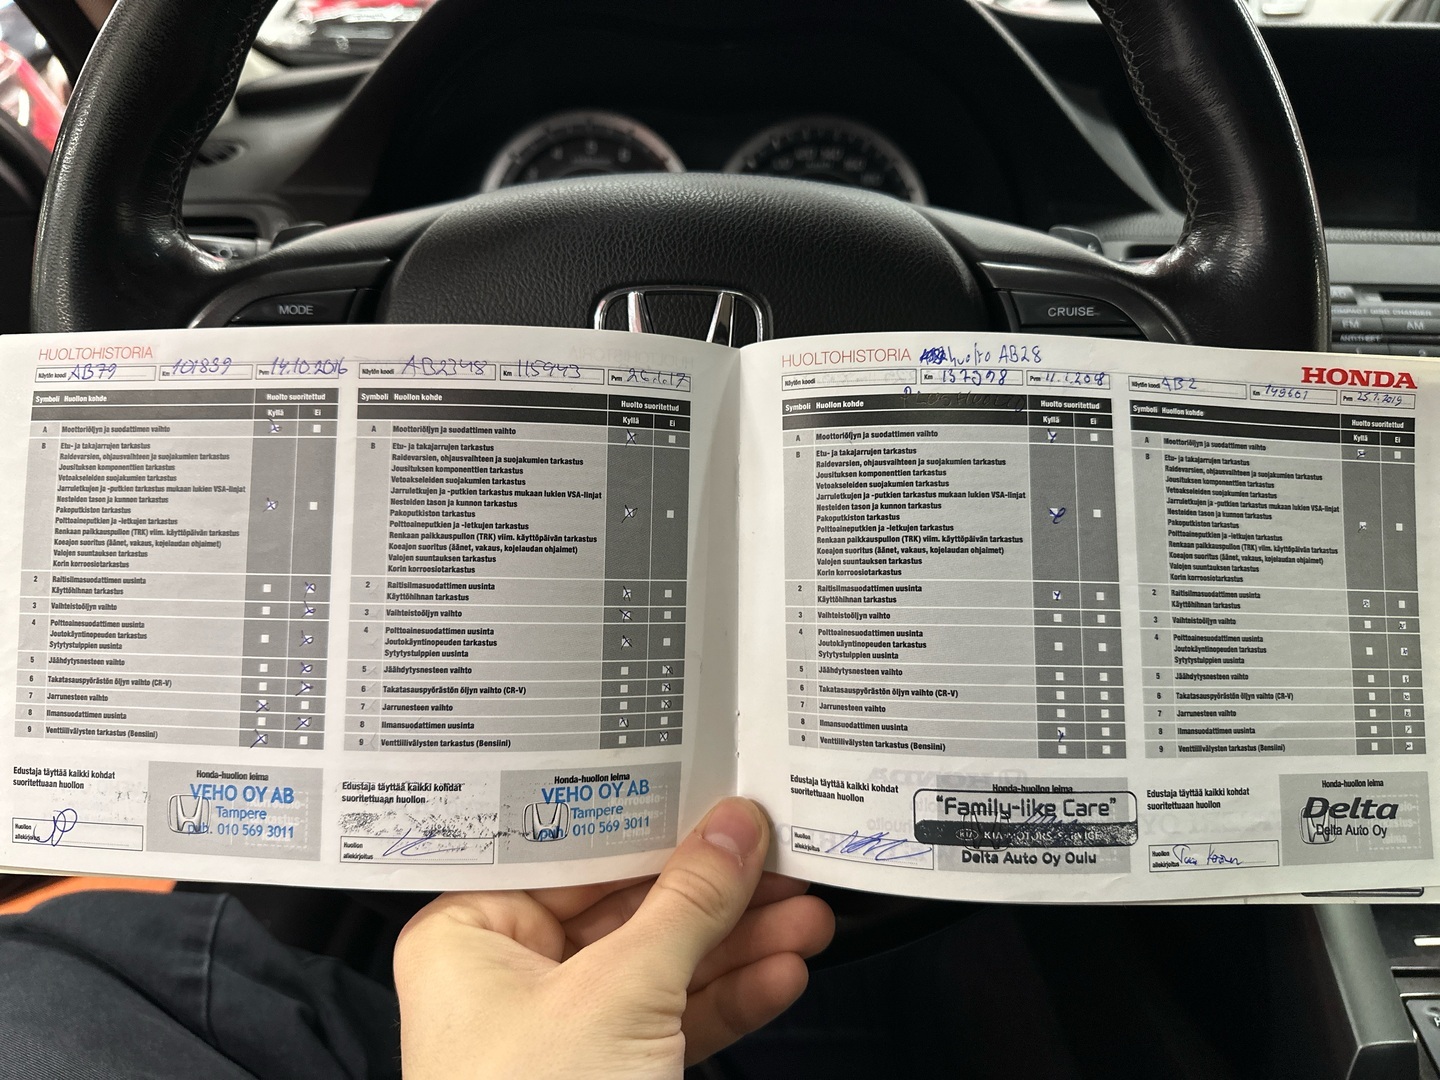 MODE
CRUISE
FM
AM
HUOLTOHISTORIA
Näytön koodi AB79
Km 101839
Pvm 14.10.2016
Symboli Huollon kohde Huolto suoritettud
Kyllä Ei
A Moottoriöljyn ja suodattimen vaihto
B Etu- ja takajarrujen tarkastus
Raidevarsien, ohjausvaihteen ja suojakumien tarkastus
Jousituksen komponenttien tarkastus
Vetoakseleiden suojakumien tarkastus
Jarruletkujen ja -putkien tarkastus mukaan lukien VSA-linjat
Nesteiden tason ja kunnon tarkastus
Pakoputkiston tarkastus
Polttoaineputkien ja -letkujen tarkastus
Renkaan paikkauspullon (TRK) viim. käyttöpäivän tarkastus
Koeajon suoritus (äänet, vakaus, kojelaudan ohjaimet)
Valojen suuntauksen tarkastus
Korin korroosiotarkastus
2 Raitisilmasuodattimen uusinta
Käyttöhihnan tarkastus
3 Vaihteistoöljyn vaihto
4 Polttoainesuodattimen uusinta
Joutokäyntinopeuden tarkastus
Sytytystulppien uusinta
5 Jäähdytysnesteen vaihto
6 Takatasauspyörästön öljyn vaihto (CR-V)
7 Jarrunesteen vaihto
8 Ilmansuodattimen uusinta
9 Venttiilivälysten tarkastus (Bensiini)
Edustaja täyttää kaikki kohdat
suoritettuaan huollon
Huollon
allekirjoitus
Honda-huollon leima
VEHO OY AB
Tampere
puh. 010 569 3011
Näytön koodi AB2348
Km 115943
Pvm
Symboli Huollon kohde Huolto suoritettud
Kyllä Ei
A Moottoriöljyn ja suodattimen vaihto
B Etu- ja takajarrujen tarkastus
Raidevarsien, ohjausvaihteen ja suojakumien tarkastus
Jousituksen komponenttien tarkastus
Vetoakseleiden suojakumien tarkastus
Jarruletkujen ja -putkien tarkastus mukaan lukien VSA-linjat
Nesteiden tason ja kunnon tarkastus
Pakoputkiston tarkastus
Polttoaineputkien ja -letkujen tarkastus
Renkaan paikkauspullon (TRK) viim. käyttöpäivän tarkastus
Koeajon suoritus (äänet, vakaus, kojelaudan ohjaimet)
Valojen suuntauksen tarkastus
Korin korroosiotarkastus
2 Raitisilmasuodattimen uusinta
Käyttöhihnan tarkastus
3 Vaihteistoöljyn vaihto
4 Polttoainesuodattimen uusinta
Joutokäyntinopeuden tarkastus
Sytytystulppien uusinta
5 Jäähdytysnesteen vaihto
6 Takatasauspyörästön öljyn vaihto (CR-V)
7 Jarrunesteen vaihto
8 Ilmansuodattimen uusinta
9 Venttiilivälysten tarkastus (Bensiini)
Edustaja täyttää kaikki kohdat
suoritettuaan huollon
Huollon
allekirjoitus
Honda-huollon leima
VEHO OY AB
Tampere
puh. 010 569 3011
HUOLTOHISTORIA huolto AB28
Näytön koodi
Km
Pvm
Symboli Huollon kohde Huolto suoritettud
Kyllä Ei
A Moottoriöljyn ja suodattimen vaihto
B Etu- ja takajarrujen tarkastus
Raidevarsien, ohjausvaihteen ja suojakumien tarkastus
Jousituksen komponenttien tarkastus
Vetoakseleiden suojakumien tarkastus
Jarruletkujen ja -putkien tarkastus mukaan lukien VSA-linjat
Nesteiden tason ja kunnon tarkastus
Pakoputkiston tarkastus
Polttoaineputkien ja -letkujen tarkastus
Renkaan paikkauspullon (TRK) viim. käyttöpäivän tarkastus
Koeajon suoritus (äänet, vakaus, kojelaudan ohjaimet)
Valojen suuntauksen tarkastus
Korin korroosiotarkastus
2 Raitisilmasuodattimen uusinta
Käyttöhihnan tarkastus
3 Vaihteistoöljyn vaihto
4 Polttoainesuodattimen uusinta
Joutokäyntinopeuden tarkastus
Sytytystulppien uusinta
5 Jäähdytysnesteen vaihto
6 Takatasauspyörästön öljyn vaihto (CR-V)
7 Jarrunesteen vaihto
8 Ilmansuodattimen uusinta
9 Venttiilivälysten tarkastus (Bensiini)
Edustaja täyttää kaikki kohdat
suoritettuaan huollon
Huollon
allekirjoitus
Honda-huollon leima
"Family-like Care"
KIA KIA MOTORS SERVICE
Delta Auto Oy Oulu
HONDA
Näytön koodi AB2
Km 149601
Pvm 25.7.2019
Symboli Huollon kohde Huolto suoritettud
Kyllä Ei
A Moottoriöljyn ja suodattimen vaihto
B Etu- ja takajarrujen tarkastus
Raidevarsien, ohjausvaihteen ja suojakumien tarkastus
Jousituksen komponenttien tarkastus
Vetoakseleiden suojakumien tarkastus
Jarruletkujen ja -putkien tarkastus mukaan lukien VSA-linjat
Nesteiden tason ja kunnon tarkastus
Pakoputkiston tarkastus
Polttoaineputkien ja -letkujen tarkastus
Renkaan paikkauspullon (TRK) viim. käyttöpäivän tarkastus
Koeajon suoritus (äänet, vakaus, kojelaudan ohjaimet)
Valojen suuntauksen tarkastus
Korin korroosiotarkastus
2 Raitisilmasuodattimen uusinta
Käyttöhihnan tarkastus
3 Vaihteistoöljyn vaihto
4 Polttoainesuodattimen uusinta
Joutokäyntinopeuden tarkastus
Sytytystulppien uusinta
5 Jäähdytysnesteen vaihto
6 Takatasauspyörästön öljyn vaihto (CR-V)
7 Jarrunesteen vaihto
8 Ilmansuodattimen uusinta
9 Venttiilivälysten tarkastus (Bensiini)
Edustaja täyttää kaikki kohdat
suoritettuaan huollon
Huollon
allekirjoitus
Honda-huollon leima
Delta
Delta Auto Oy